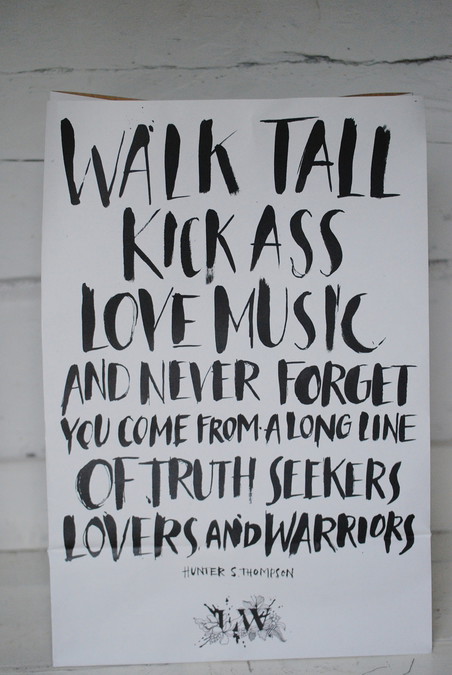 WALK TALL
KICK ASS
LOVE MUSIC
AND NEVER FORGET
YOU COME FROM A LONG LINE
OF TRUTH SEEKERS
LOVERS AND WARRIORS
HUNTER S. THOMPSON